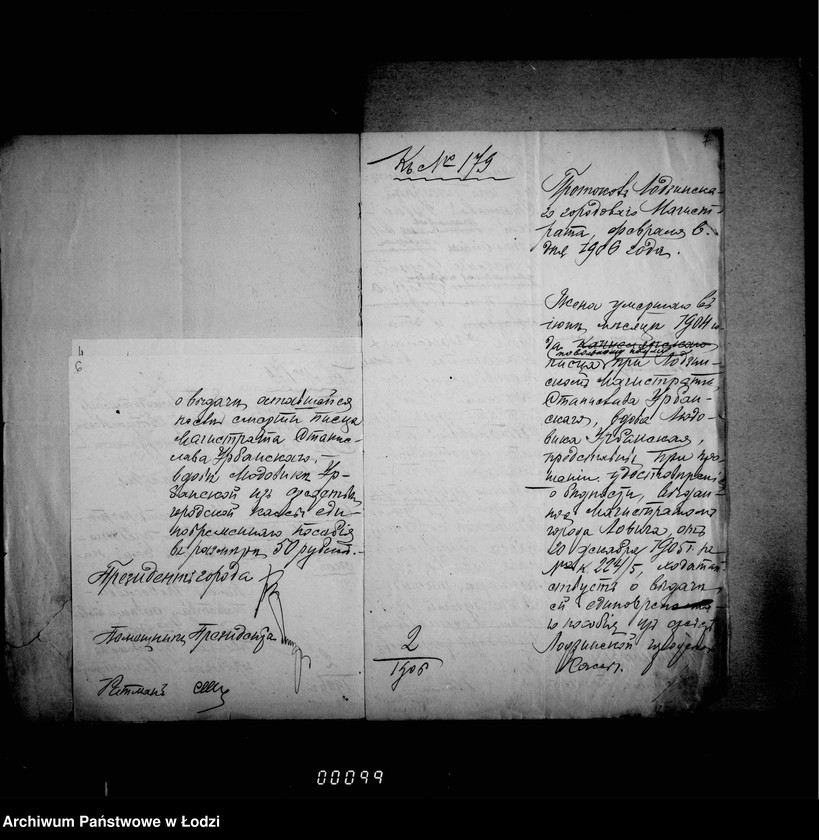 о выдачи оставшейся
после смерти писца
Магистрата Станис-
лава Урбанского, -
вдовы Людовики Ур-
банской из средствъ
городской кассы еди-
новременнаго пособія
въ размѣрѣ 50 рублей. -
Президентъ города
Помощникъ Президента
Ратманъ
Къ № 179
Протоколъ Лодзинска-
го городоваго Магист-
рата, февраля 6.
дня 1906 года.
Жена умершаго въ
іюнѣ мѣсяцѣ 1904 го-
да
писца при Лодзин-
скомъ Магистратѣ,
Станислава Урбан-
скаго, вдова Людо-
вика Урбанская,
представивъ при про-
шеніи удостовѣреніе
о бѣдности, выдан-
ное Магистратомъ
города Ловича, отъ
20 декабря 1905 г. за
№ 224/5, ходатай-
ствуетъ о выдачи
ей единовремен
го пособія изъ средствъ
Лодзинской городской
Кассы.
2
1906
00099
Archiwum Państwowe w Łodzi